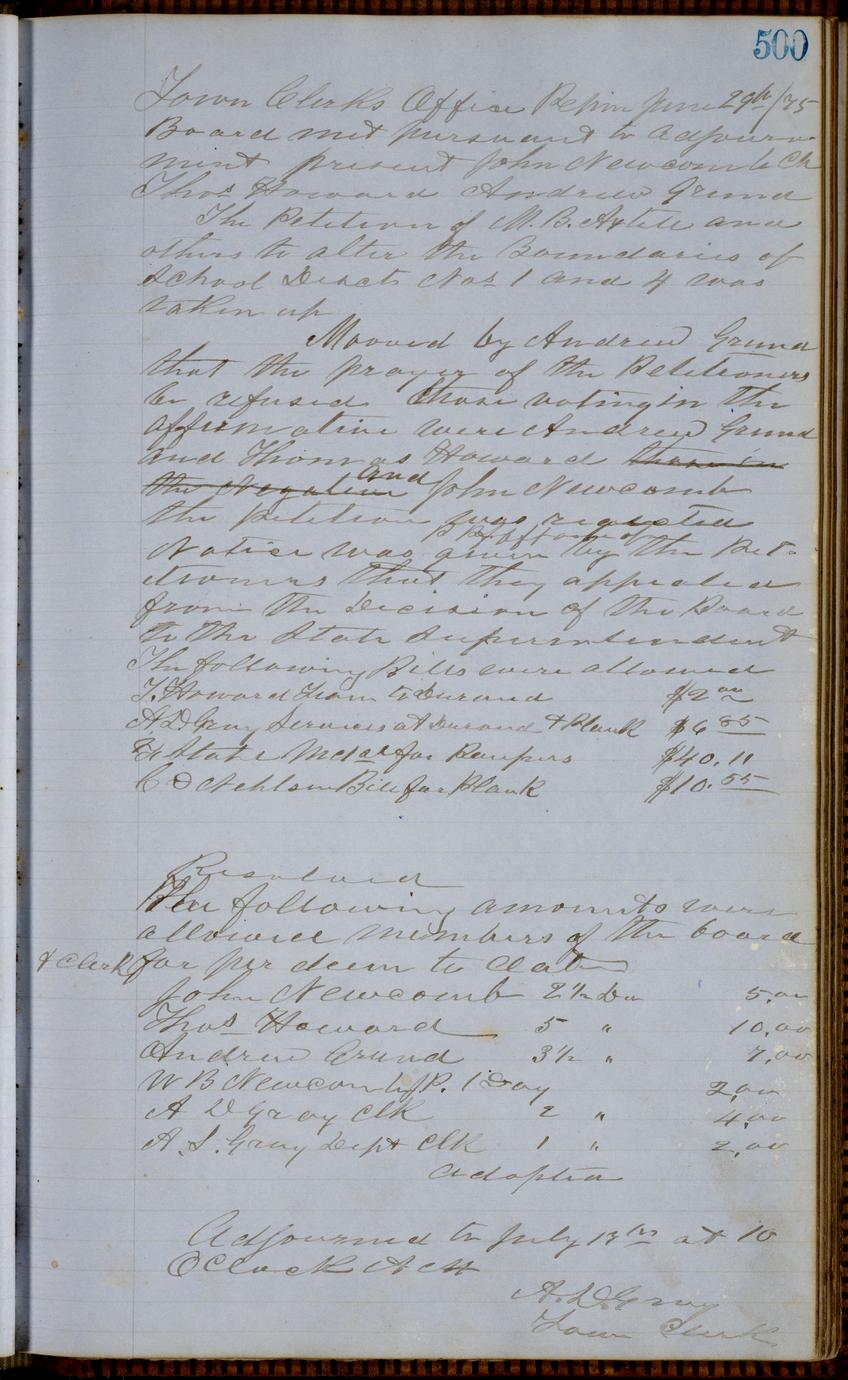 500
Town Clerks Office Pepin June 29th/75
Board met pursuant to adjourn-
ment present John Newcomb Ch
Thos Howard Andrew Grund
The Petition of M. B. Axtell and
others to alter the Boundaries of
School Disct Nos 1 and 4 was
taken up
Mooved by Andrew Grund
that the prayer of the Petitioners
be refused those voting in the
affirmative were Andrew Grund
and Thomas Howard those in
the Negative and John Newcomb
the petition was rejected
Notice was given by the Peti-
tioners that they appealed
from the Decision of the Board
to the State Superintendent
The following Bills were allowed
T. Howard Team to Durand $2.00
A. D. Gray Services at Durand & Plank $6.85
State for Paupers $40.11
C D Bill for Plank $10.55
Resolved
The following amounts were
allowed members of the board
& Clerk for per deem to date
John Newcomb 2 1/2 Da 5.00
Thos Howard 5 " 10.00
Andrew Grund 3 1/2 " 7.00
W B Newcomb 1 Day 2.00
A D Gray Clk 2 " 4.00
A. S. Gray Dept Clk 1 " 2.00
adopted
Adjourned to July 13th at 10
OClock A M
A. D. Gray
Town Clerk